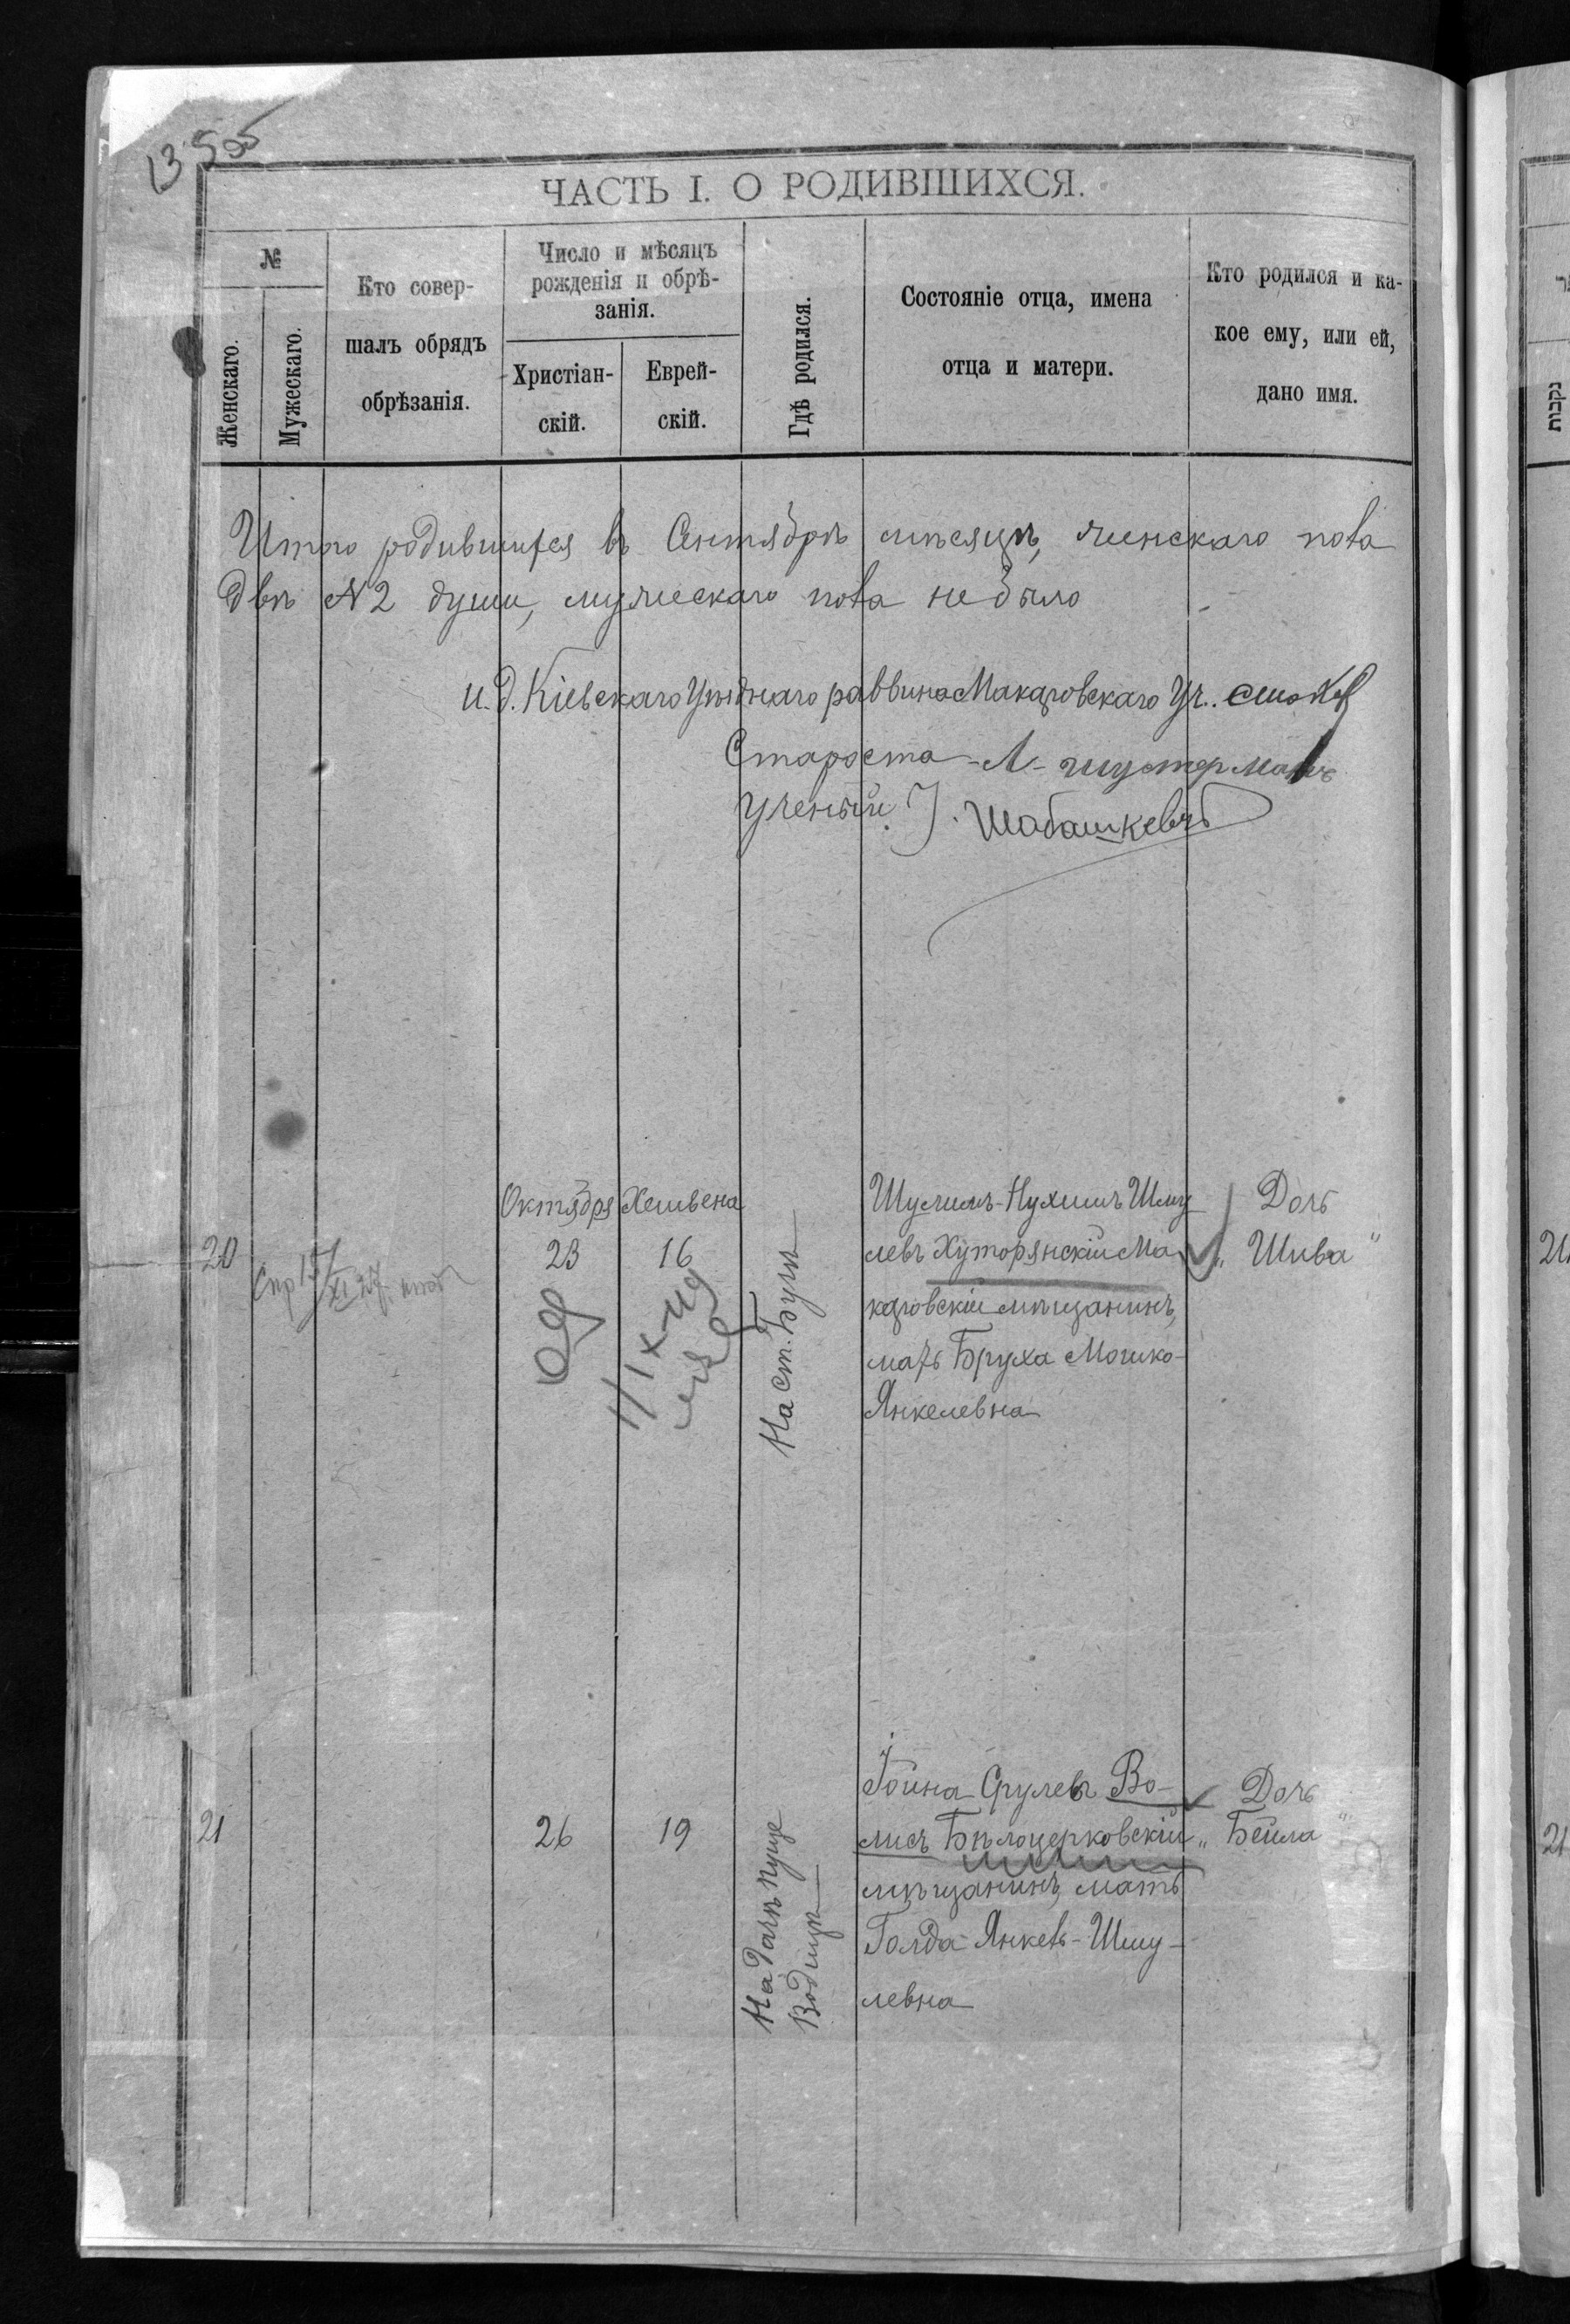 13 505
ЧАСТЬ I. О РОДИВШИХСЯ.
№
Женскаго.
Мужескаго.
Кто совер-
шалъ обрядъ
обрѣзанія.
Число и мѣсяцъ
рожденія и обрѣ-
занія.
Христіан-
скій.
Еврей-
скій.
Гдѣ родился.
Состояніе отца, имена
отца и матери.
Кто родился и ка-
кое ему, или ей,
дано имя.
Итого родившихся въ Сентябрѣ мѣсяцѣ, женскаго пола
двѣ № 2 души, мужескаго пола небыло
и. д. Кіевскаго Уѣзднаго раввина Макаровскаго Уч.
Староста Л. Шустерманъ
Ученый І. Шабашкевичъ
20
Октября
23
Хешвена
16
На ст. Буча
Шулимъ-Нухимъ Шму
левъ Хуторянскій Ма
каровскій мѣщанинъ,
мать Бруха Мошко-
Янкелевна
Дочь
„ Шива "
21
26
19
На дачѣ Пуще
Водицѣ
Іойна Срулевъ Во-
лисъ Бѣлоцерковскій
мѣщанинъ, мать
Голда Янкель-Шму-
левна
Дочь
„ Бейла "
נקבות
21